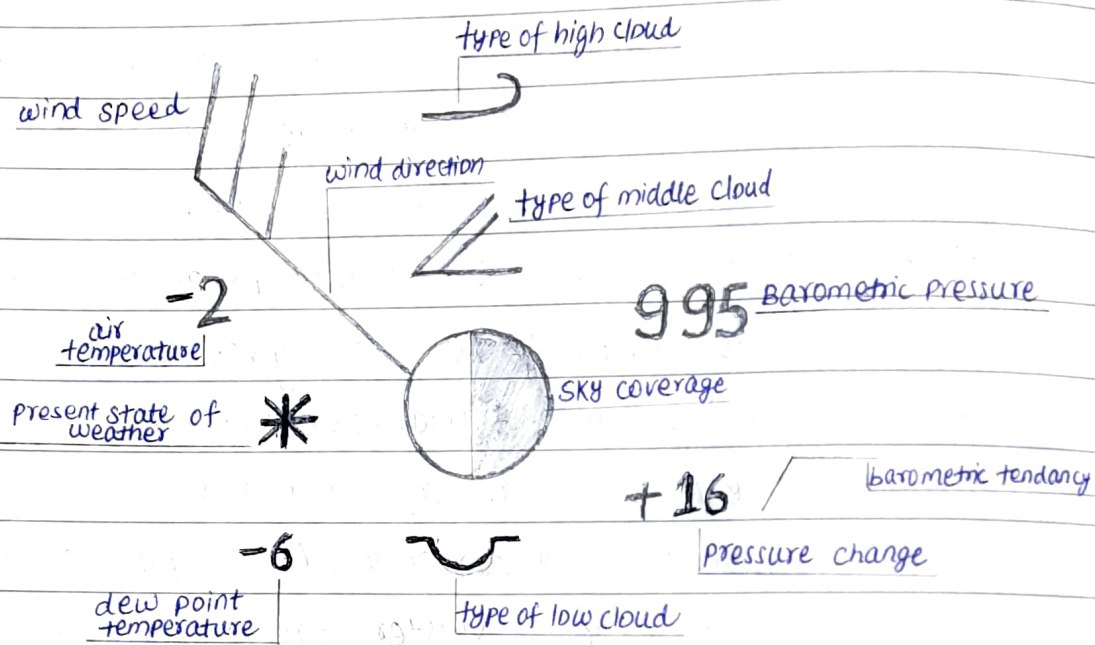 type of high cloud
wind speed
wind direction
type of middle cloud
-2
995 Barometric Pressure
air
temperature
SKY coverage
Present state of
weather
+16
barometric tendancy
-6
Pressure change
dew point
temperature
type of low cloud